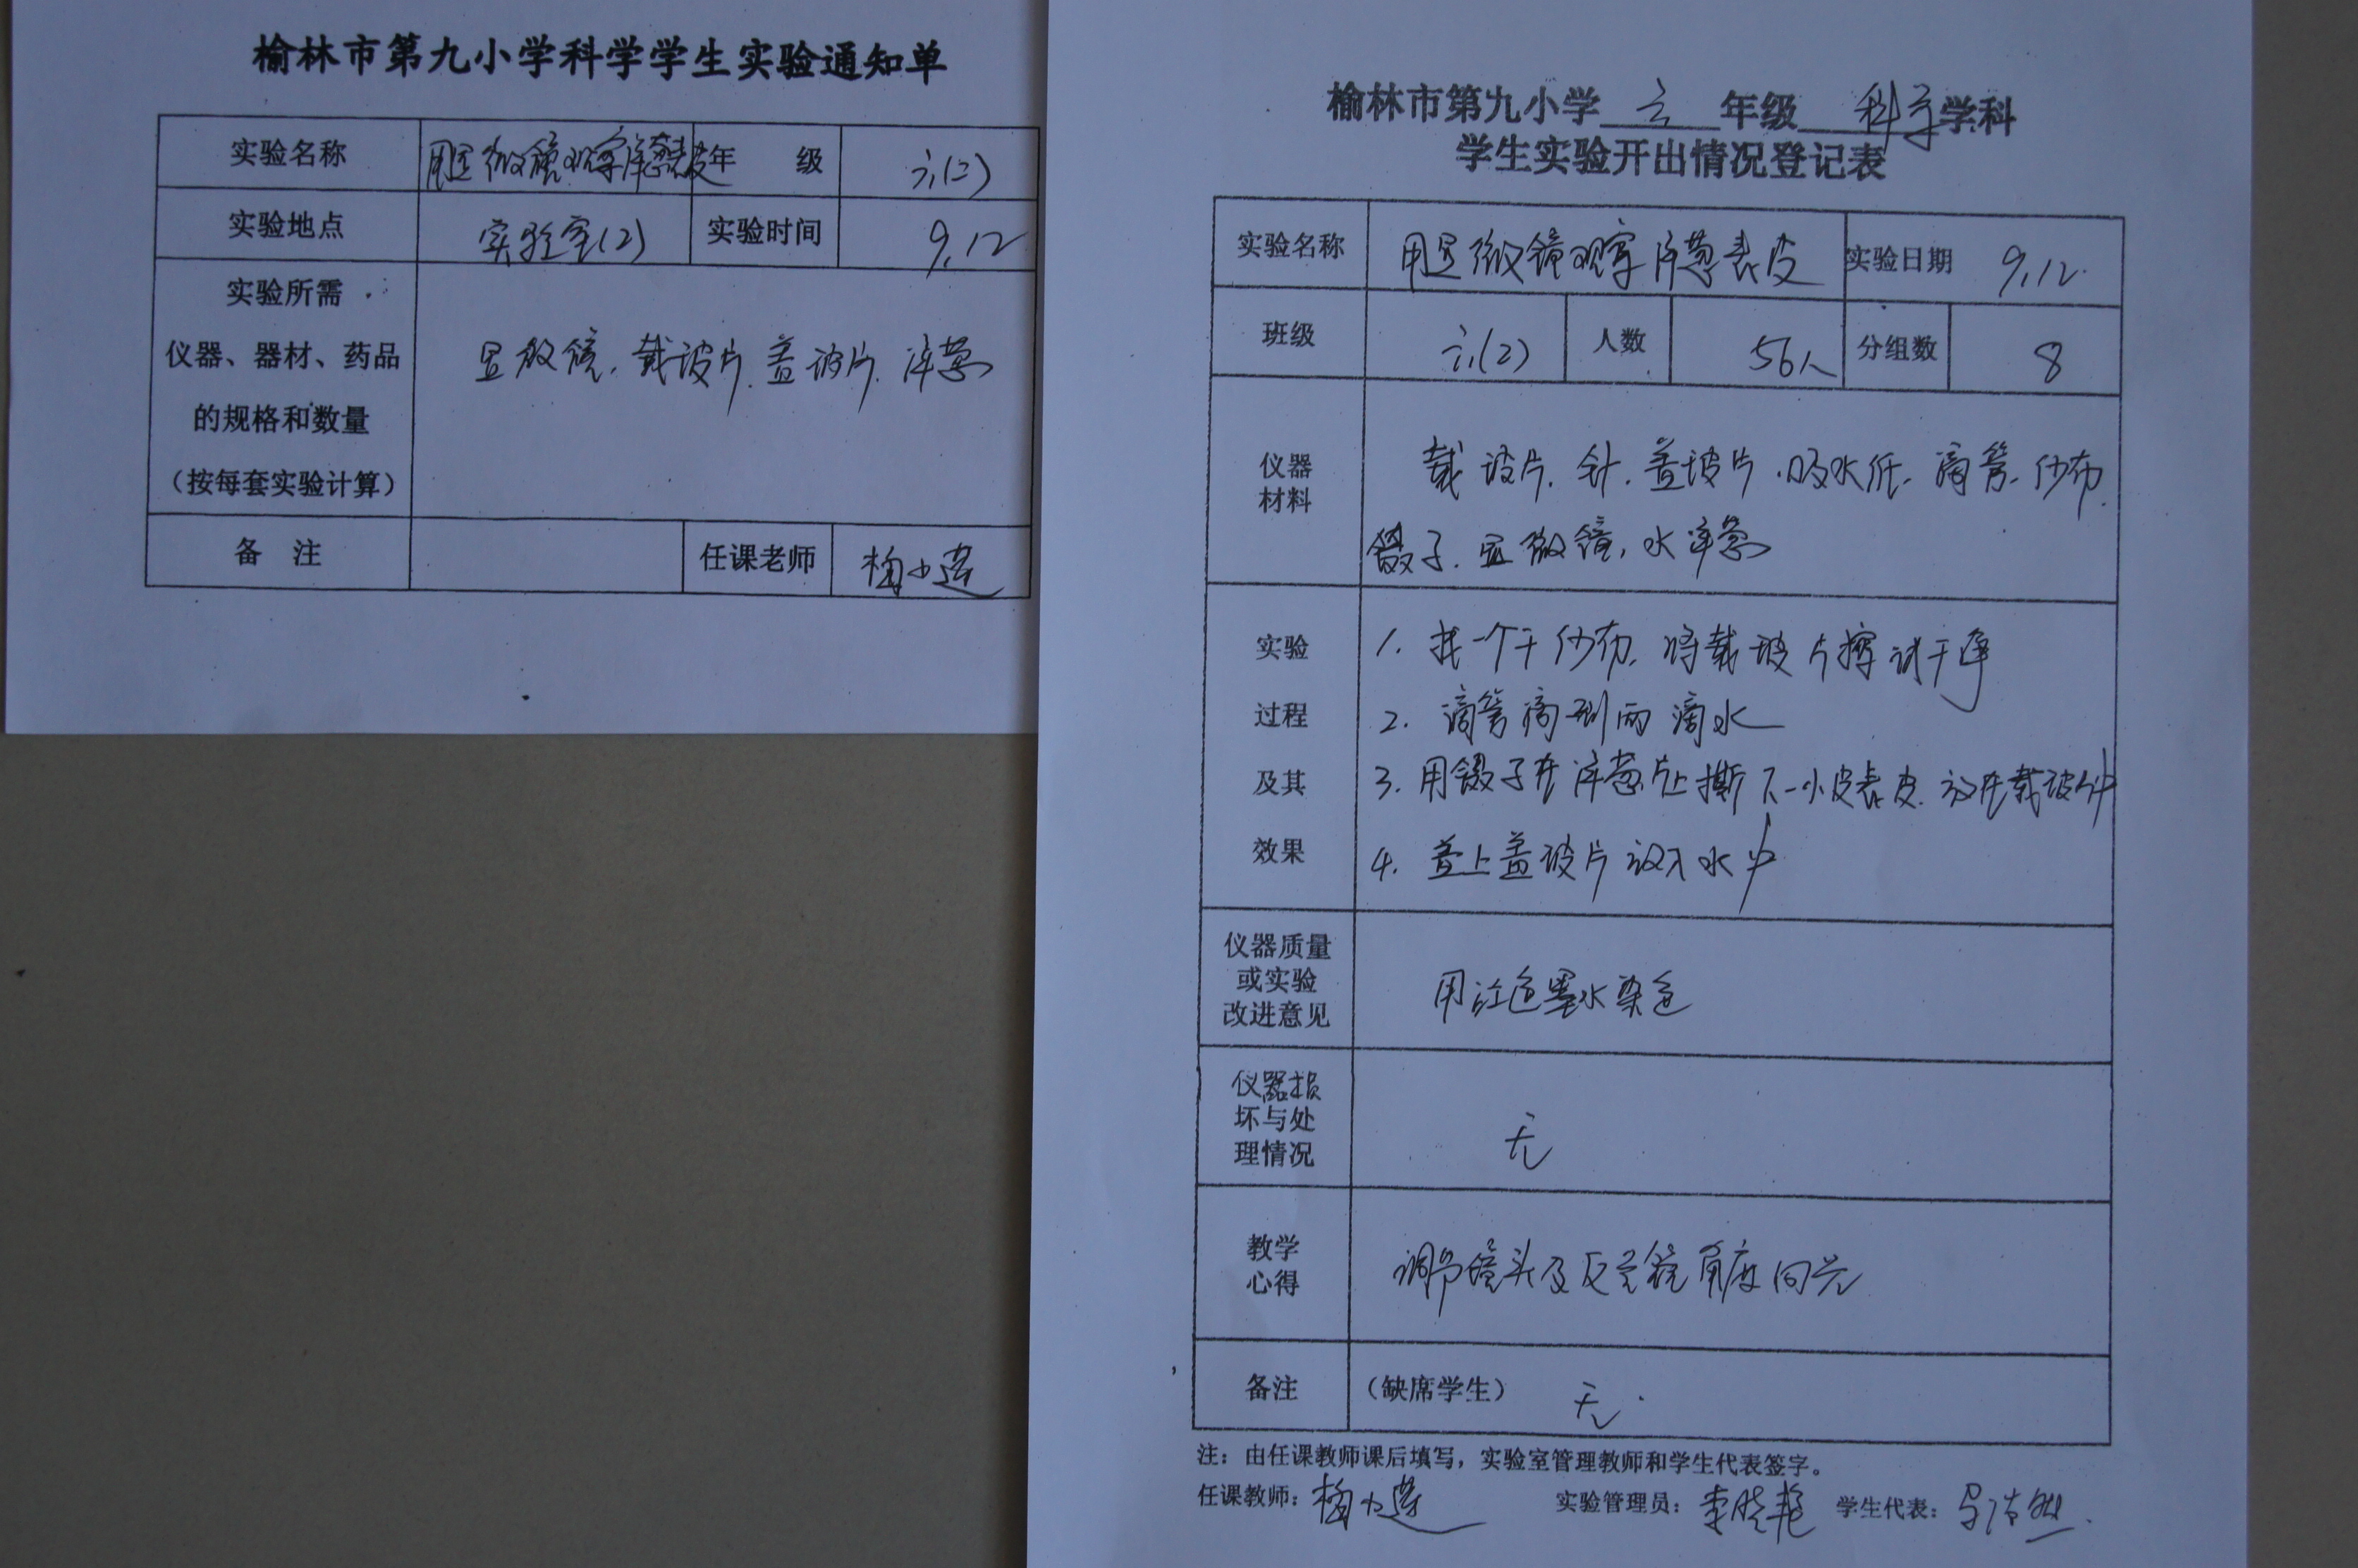 榆林市第九小学科学学生实验通知单
实验名称 用显微镜观察洋葱表皮 年 级 六(2)
实验地点 实验室(2) 实验时间 9.12
实验所需
仪器、器材、药品
的规格和数量
(按每套实验计算)
显微镜.载玻片.盖玻片.洋葱
备 注 任课老师 梅小莲
榆林市第九小学 六 年级 科学 学科
学生实验开出情况登记表
实验名称 用显微镜观察洋葱表皮 实验日期 9.12.
班级 六(2) 人数 56人 分组数 8
仪器
材料
载玻片.针.盖玻片.吸水纸.滴管.纱布.
镊子.显微镜,水洋葱
实验
过程
及其
效果
1. 找一个干纱布.将载玻片擦试干净
2. 滴管滴到两滴水
3. 用镊子在洋葱片上撕下一小皮表皮.放在载玻片中
4. 盖上盖玻片放入水中
仪器质量
或实验
改进意见
用红色墨水染色
仪器损
坏与处
理情况
无
教学
心得
调节镜头及反光镜角度向光
备注 (缺席学生) 无.
注:由任课教师课后填写,实验室管理教师和学生代表签字。
任课教师:梅小莲 实验管理员:李晓艳 学生代表: